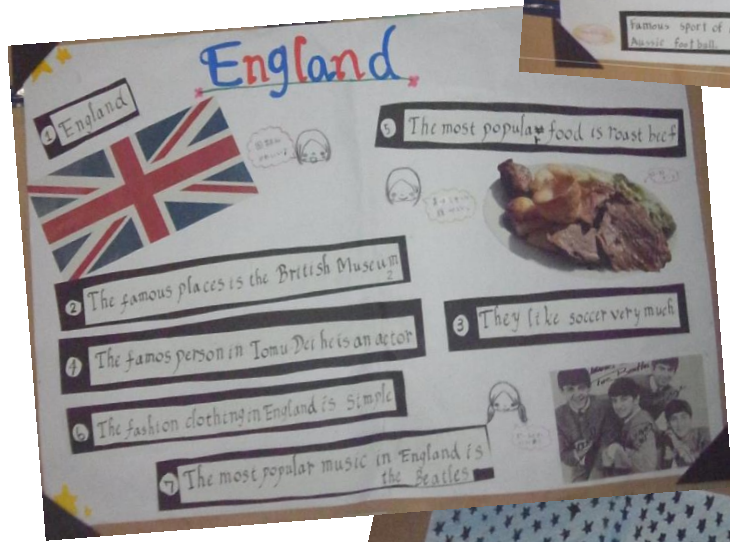 England
Famous sport of
Aussie football.
① England
⑤ The most popular food is roast beef
② The famous places is the British Museum
2
③ They like soccer very much
④ The famos person in Tomu Dei he is an actor
⑥ The fashion clothing in England is simple
⑦ The most popular music in England is
the Beatles